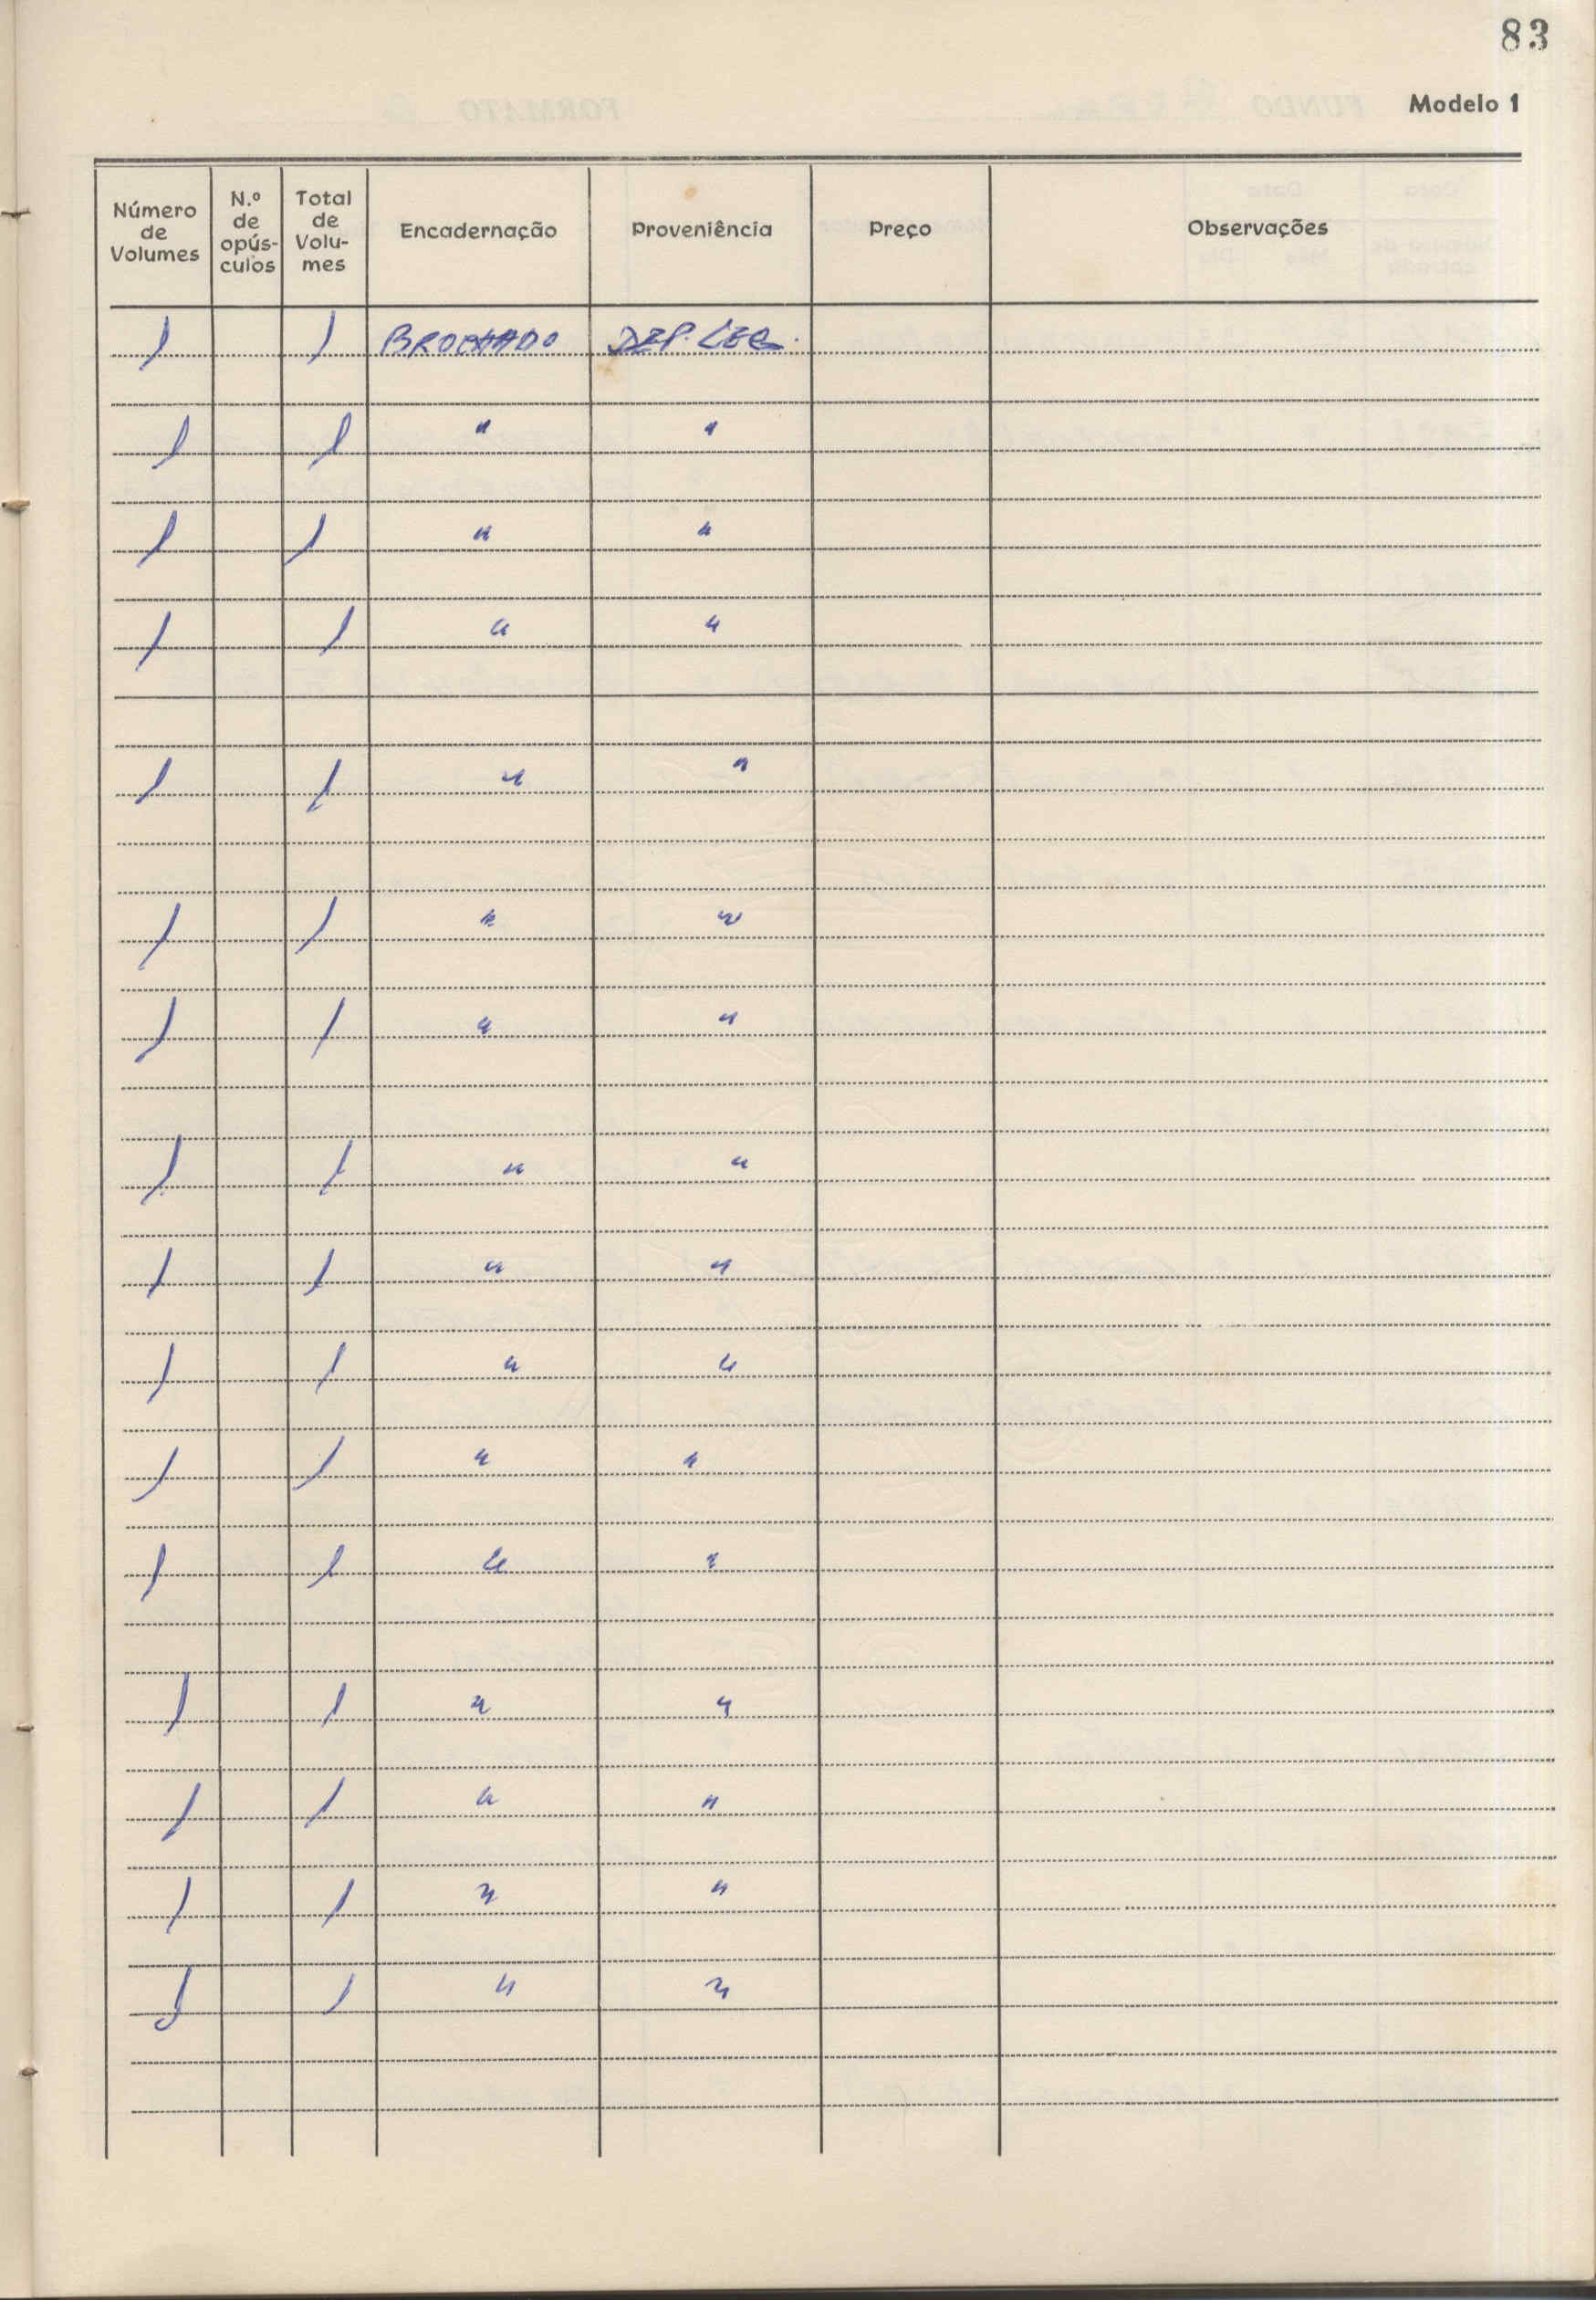 83
Modelo 1
Número de Volumes | N.º de opús-culos | Total de Volu-mes | Encadernação | Proveniência | Preço | Observações
1 | | 1 | BROCHADO | DEP. LEG. | |
1 | | 1 | " | " | |
1 | | 1 | " | " | |
1 | | 1 | " | " | |
1 | | 1 | " | " | |
1 | | 1 | " | " | |
1 | | 1 | " | " | |
1 | | 1 | " | " | |
1 | | 1 | " | " | |
1 | | 1 | " | " | |
1 | | 1 | " | " | |
1 | | 1 | " | " | |
1 | | 1 | " | " | |
1 | | 1 | " | " | |
1 | | 1 | " | " | |
1 | | 1 | " | " | |